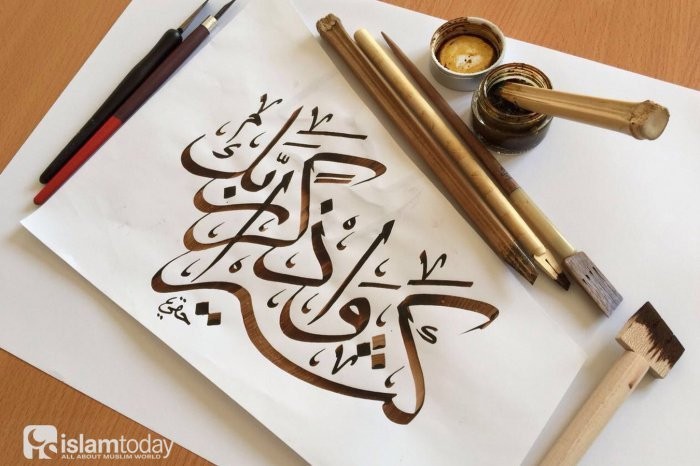 واذكر ربك كثيرا
islamtoday
ALL ABOUT MUSLIM WORLD